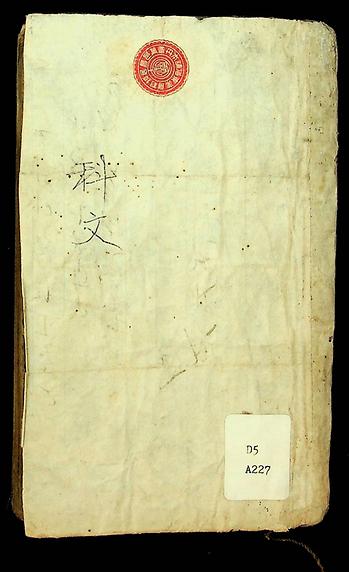 科文
D5
A227